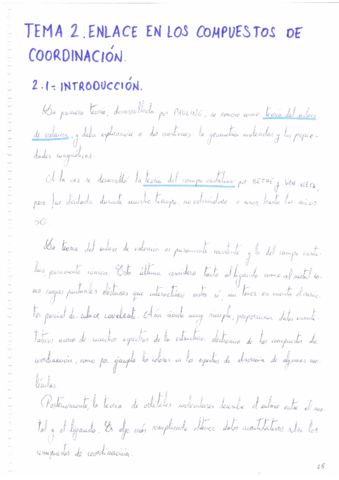 TEMA 2. ENLACE EN LOS COMPUESTOS DE
COORDINACIÓN.
2.1= INTRODUCCIÓN.
La primera teoría, desarrollada por PAULING, se conoce como teoría del enlace
de valencia, y daba explicaciones a dos cuestiones: la geometría molecular y las propie-
dades magnéticas.
A la vez se desarrolló la teoría del campo cristalino por BETHE y VAN VLECK,
pero fue olvidada durante mucho tiempo, no volviéndose a usar hasta los años
50
La teoría del enlace de valencia es puramente covalente y la del campo crista-
lino puramente iónica. Esta última considera tanto al ligando como al metal co-
mo cargas puntuales eléctricas que interactúan entre sí, sin tener en cuenta el carác-
ter parcial de enlace covalente. Aún siendo muy simple, proporciona datos cuanti-
tativos acerca de muchos aspectos de la estructura electrónica de los compuestos de
coordinación, como por ejemplo los colores en los espectros de absorción de algunos me-
Posteriormente, la teoría de orbitales moleculares describe el enlace entre el me-
tal y el ligando. Es algo más complicado obtener datos cuantitativos sobre los
compuestos de coordinación.